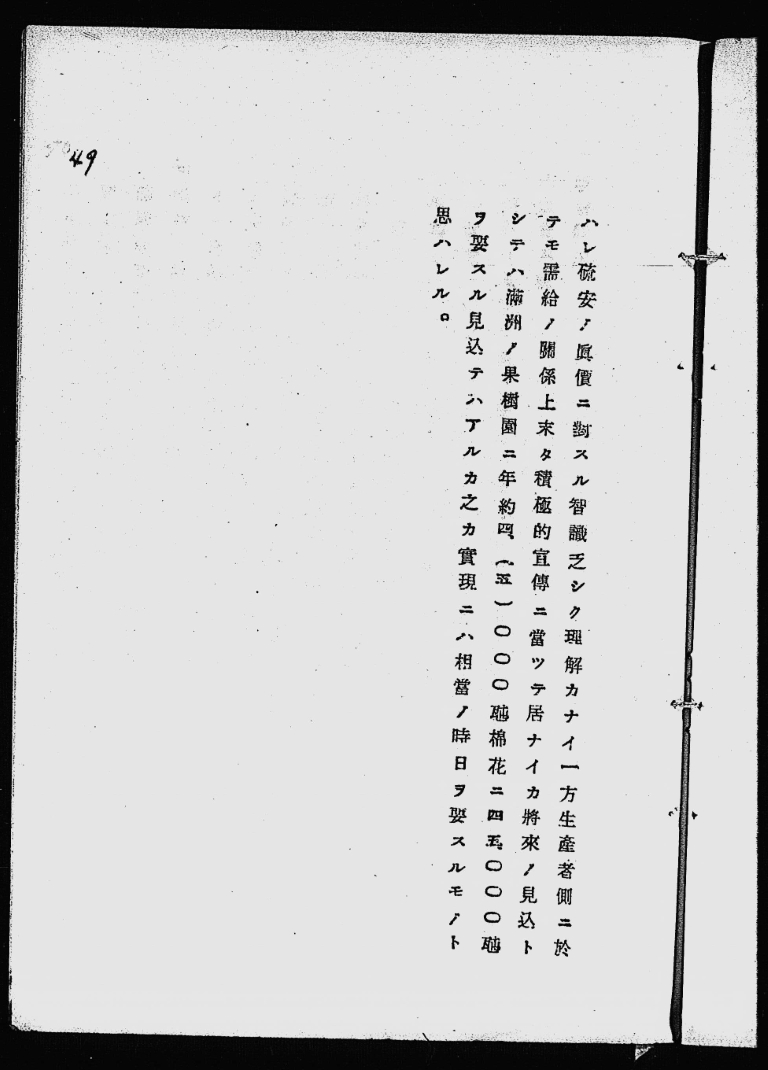 49
ハレ硫安ノ眞價ニ對スル智識乏シク理解カナイ一方生產者側ニ於
テモ需給ノ關係上末タ積極的宣傳ニ當ツテ居ナイカ將來ノ見込ト
シテハ滿洲ノ果樹園ニ年約四、(五)〇〇〇瓲棉花ニ四五、〇〇〇瓲
ヲ要スル見込テハアルカ之カ實現ニハ相當ノ時日ヲ要スルモノト
思ハレル。